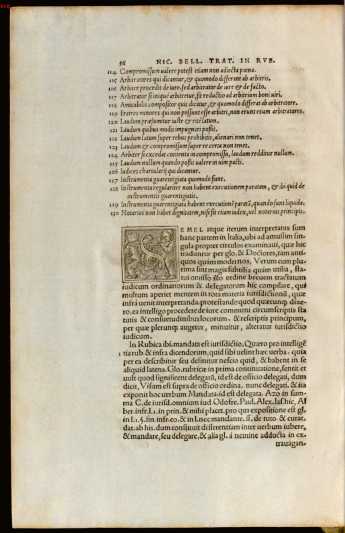 96 NIC. BELL. TRAT. IN RVB.
114 Compromissum valere potest etiam non adiecta pœna.
115 Arbitratores qui dicantur, & quomodo differant ab arbitris.
116 Arbiter procedit de iure. sed arbitrator de iure & de facto.
117 Arbitrator si iniquè arbitretur, fit reductio ad arbitrium boni viri.
118 Amicabilis compositor quis dicatur, & quomodo differat ab arbitratore.
119 Fratres minores qui non possunt esse arbitri, non erunt etiam arbitratores.
120 Laudum præsumitur iuste & rite latum.
121 Laudum quibus modis impugnari possit.
122 Laudum latum super rebus prohibitis, alienari non tenet.
123 Laudum & compromissum super re certa non tenet.
124 Arbiter si excedat contenta in compromisso, laudum redditur nullum.
125 Laudum nullum quando possit valere in vim pacti.
126 Iudices chartularij qui dicantur.
127 Instrumenta guarentigiata quomodo sunt.
128 Instrumenta regulariter non habent executionem paratam, & de quid de
instrumentis guarentigiatis.
129 Instrumenta guarentigiata habent executionem paratam, quando sunt liquida.
130 Notarius non habet dignitatem, nisi sit etiam iudex, vel notarius principis.
SEMEL atque iterum interpretatus sum
hanc partem in Italia, ubi ad amussim sin
gula propter circulos examinari, quæ huc
traduntur per glo. & Doctores, tam anti
quos quàm modernos. Verum cum plu
rima sint magis subtilia quàm utilia, sta
tui omisso illo ordine breuem tractatum
iudicum ordinariorum & delegatorum hic compilare, qui
multum aperiet mentem in tota materia iurisdictionũ, quæ
infrà uenit interpretanda, protestando quòd quæcunq; dixe-
ro, ea intelligo procedere de iure communi circumscriptis sta
tutis & consuetudinibus locorum, & rescriptis principum,
per quæ plerunq; augetur, minuitur, alteratur iurisdictio
iudicum.
In Rubica ibi. mandata est iurisdictio. Quæro pro intelligẽ
1 tia rub. & infra dicendorum, quid sibi uelint hæc uerba. quia
per ea describitur seu definitur nescio quid, & habent in se
aliquid latens. Glo. rubricæ in prima continuatione, sentit et
uult quod significent delegatũ, id est de officio delegati, dum
dicit, Visum est supra de officio ordina. nunc delegati, & sic
exponit hoc uerbum Mandata. id est delegata. Azo in sum-
ma C. de iurisd. omnium iud. Odofre. Paul. Alex. Ias. hic, Al
ber. infr. l. 1. in prin. & mihi placet. pro qua expositione est gl.
in l. 1. §. fin. infr. eo. & in l. nec mandante. ff. de tuto. & curat.
dat. ab his. dum constituit differentiam inter uerbum iubere,
& mandare, seu delegare, & alia gl. à termine adducta in ex
trauagan-